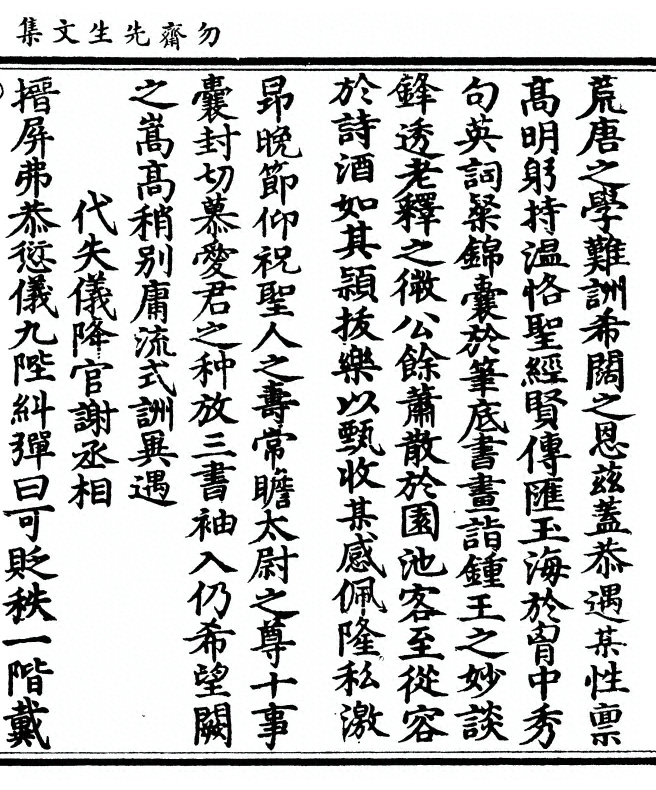 勿齋先生文集
荒唐之學難詶希闊之恩茲蓋恭遇某性稟
高明躬持溫恪聖經賢傳匯玉海於胷中秀
句英詞粲錦囊於筆底書畫詣鍾王之妙談
鋒透老釋之微公餘蕭散於園池客至從容
於詩酒如其穎拔樂以甄收某感佩隆私激
昂晚節仰祝聖人之壽常瞻太尉之尊十事
囊封切慕愛君之种放三書袖入仍希望闕
之嵩高稍別庸流式詶異遇
代失儀降官謝丞相
搢屏弗恭愆儀九陛糾彈曰可貶秩一階戴